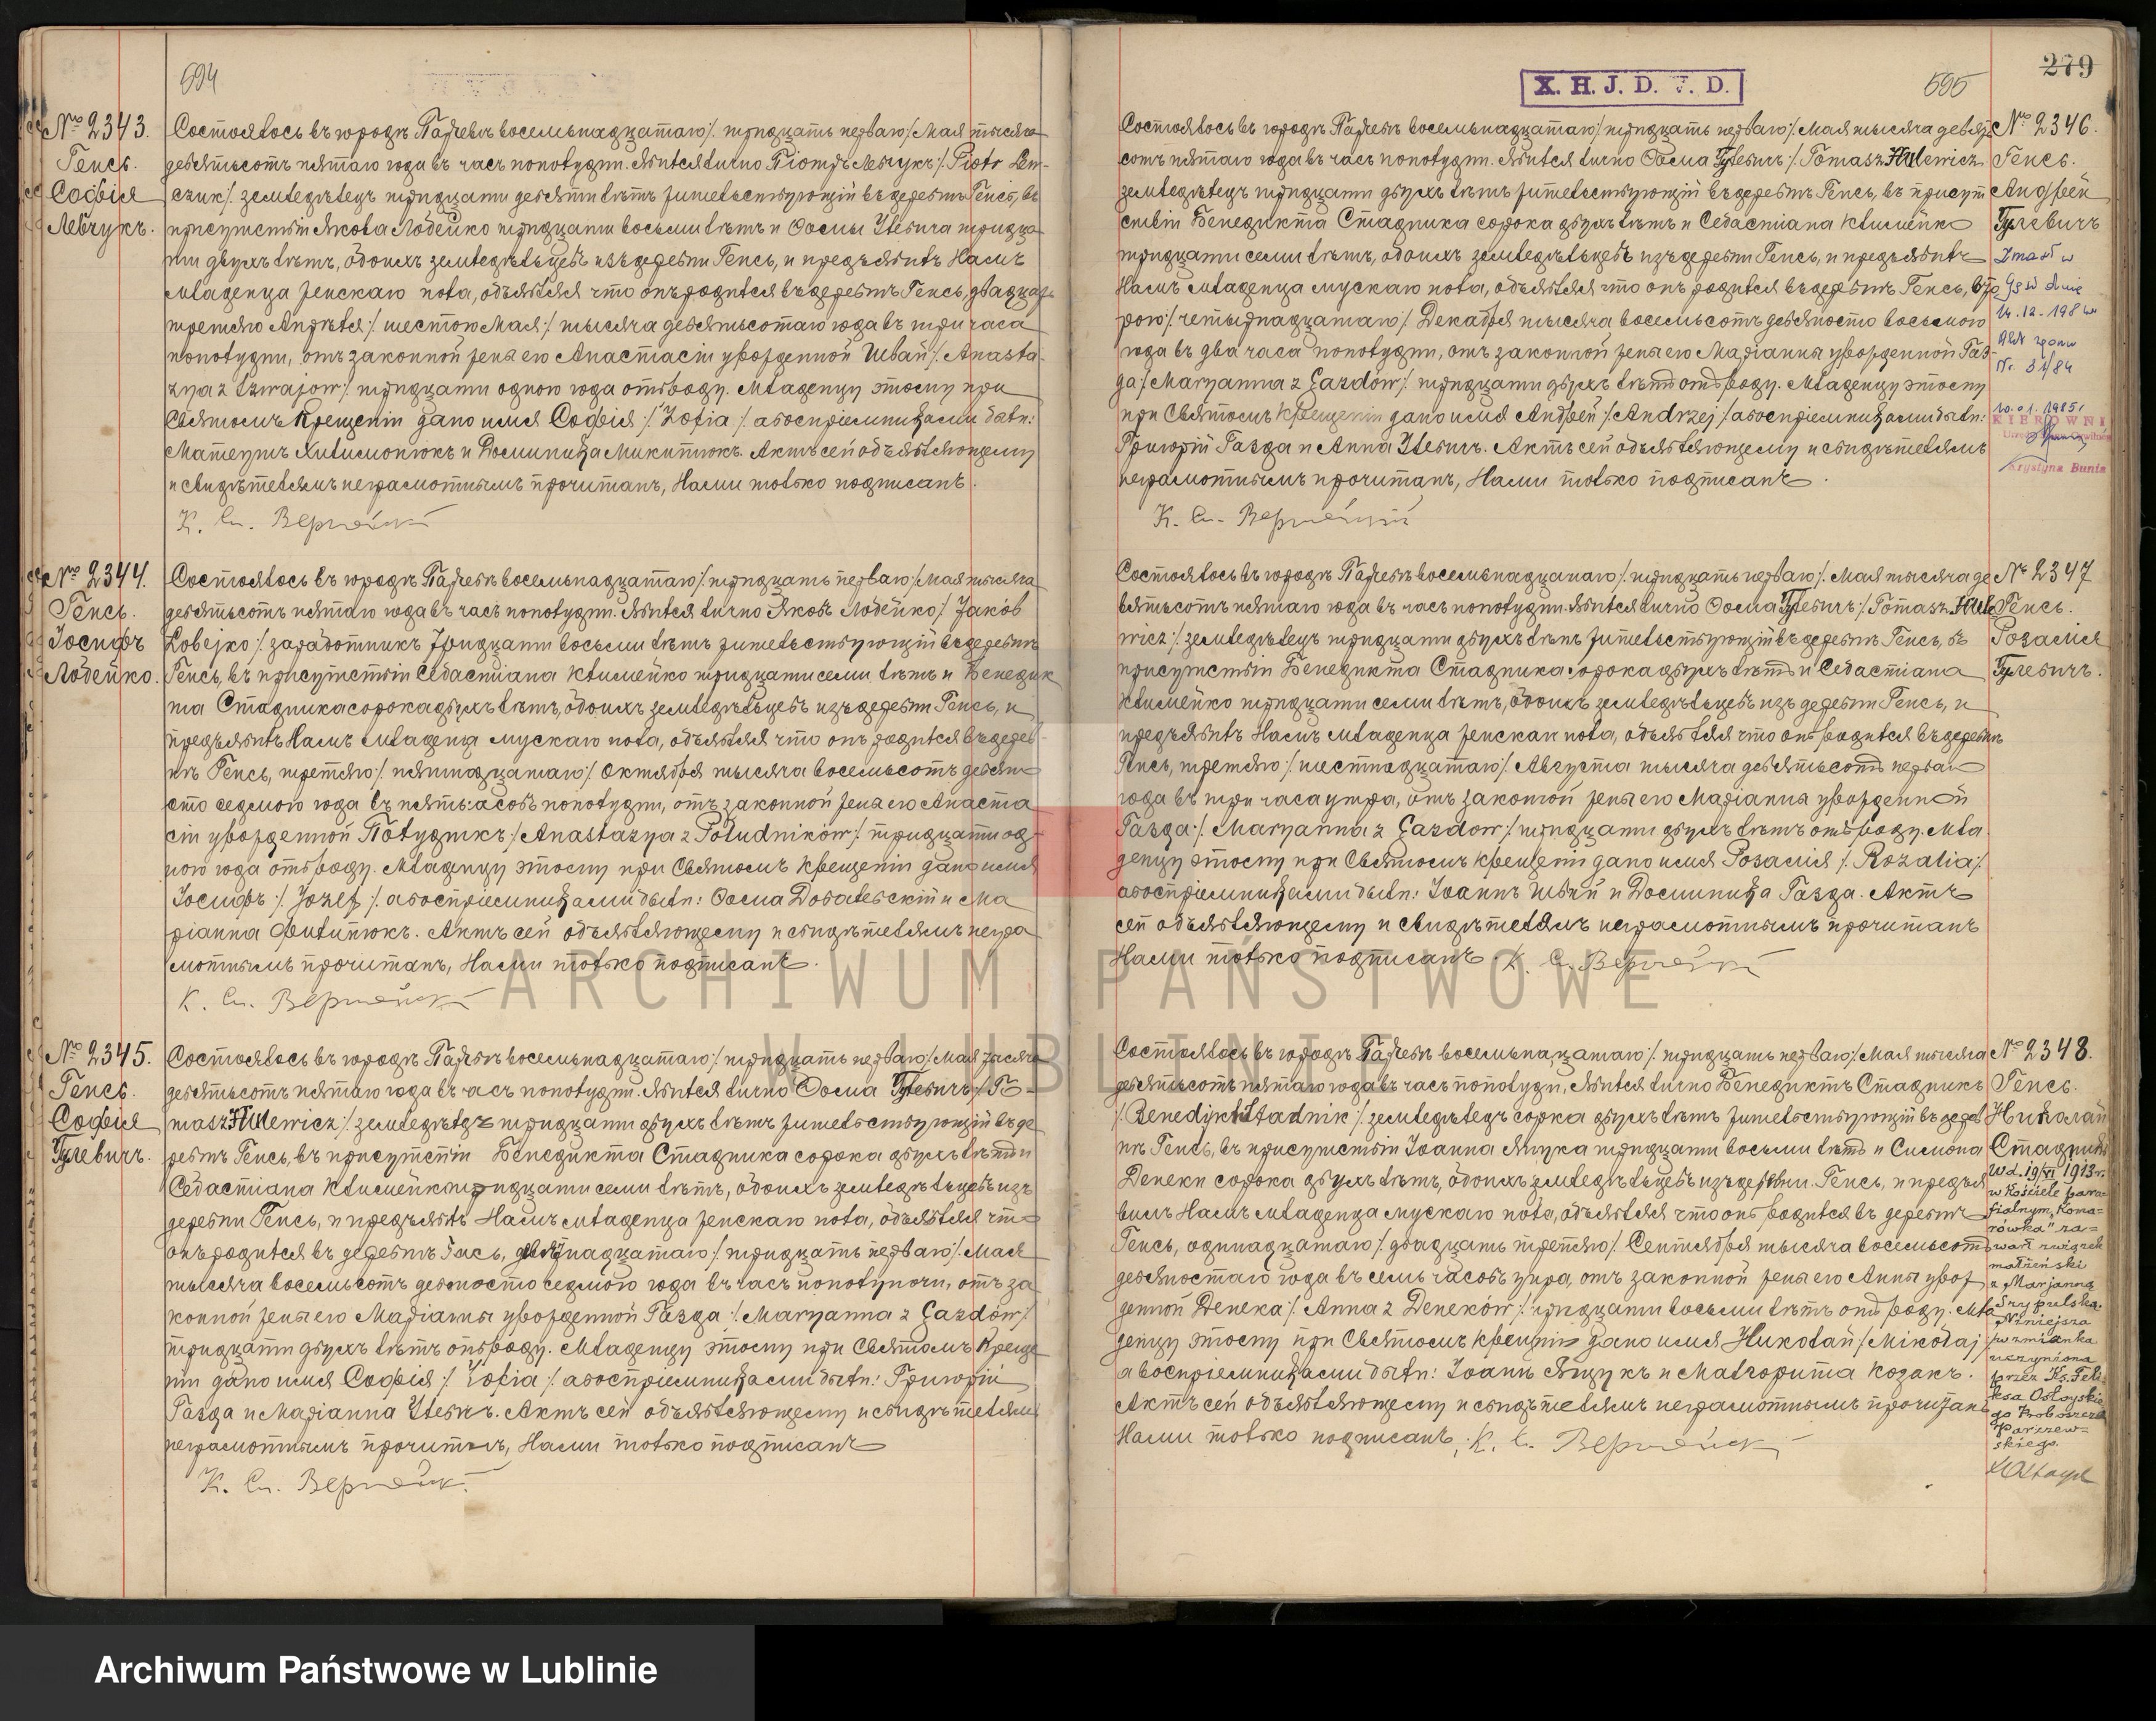 594
№ 2343.
Генсь.
Софія
Левчукъ.
Состоялось въ городѣ Парчевѣ восемьнадцатаго /: тридцать перваго :/ Мая тысяча
девятьсотъ пятаго года въ часъ пополудни. Явился лично Піотръ Левчукъ /: Piotr Lew-
czuk :/ земледѣлецъ тридцати девяти лѣтъ жительствующій въ деревнѣ Генсь, въ
присутствіи Якова Лобейко тридцати восьми лѣтъ и Ѳомы
ти двухъ лѣтъ, обоихъ земледѣльцевъ изъ деревни Генсь, и предъявилъ Намъ
младенца женскаго пола, объявляя что онъ родился въ деревнѣ Генсь, двадцать
третяго Апрѣля /: шестого Мая :/ тысяча девятьсотаго года въ три часа
пополудни, отъ законной жены его Анастасіи урожденной Швай /: Anasta-
zya z Szwajow :/ тридцати одного года отъ роду. Младенцу этому при
Святомъ Крещеніи дано имя Софія /: Zofia :/ а воспріемниками были:
Матеушъ и Доминика Микитюкъ. Актъ сей объявляющему
и свидѣтелямъ неграмотнымъ прочитанъ, Нами только подписанъ.
К. Сн.
№ 2344.
Генсь.
Іосифъ
Лобейко.
Состоялось въ городѣ Парчевѣ восемьнадцатаго /: тридцать перваго :/ Мая тысяча
девятьсотъ пятаго года въ часъ пополудни. Явился лично Яковъ Лобейко /: Jakób
Łobejko :/ заработникъ тридцати восьми лѣтъ жительствующій въ деревнѣ
Генсь, въ присутствіи Севастіана Климейко тридцати семи лѣтъ и Бенедик
та Стадника сорока двухъ лѣтъ, обоихъ земледѣльцевъ изъ деревни Генсь, и
предъявилъ Намъ младенца мускаго пола, объявляя что онъ родился въ дерев-
нѣ Генсь, третяго /: пятнадцатаго :/ Октября тысяча восемьсотъ девяно
сто седмого года въ пять часовъ пополудни, отъ законной жены его Анаста
сіи урожденной Полудникъ /: Anastazya z Południków :/ тридцати од-
ного года отъ роду. Младенцу этому при Святомъ Крещеніи дано имя
Іосифъ /: Józef :/ а воспріемниками были: Ѳома и Ма
ріанна Филипюкъ. Актъ сей объявляющему и свидѣтелямъ негра
мотнымъ прочитанъ, Нами только подписанъ.
К. Сн.
№ 2345.
Генсь.
Софія
Гулевичъ.
Состоялось въ городѣ Парчевѣ восемьнадцатаго /: тридцать перваго :/ Мая тысяча
девятьсотъ пятаго года въ часъ пополудни. Явился лично Ѳома Гулевичъ /: To-
masz Hulewicz :/ земледѣлецъ тридцати двухъ лѣтъ жительствующій въ де
ревнѣ Генсь, въ присутствіи Бенедикта Стадника сорока двухъ лѣтъ и
Севастіана Климейко тридцати семи лѣтъ, обоихъ земледѣльцевъ изъ
деревни Генсь, и предъявилъ Намъ младенца женскаго пола, объявляя что
онъ родился въ деревнѣ Генсь, девятнадцатаго /: тридцать перваго :/ Мая
тысяча восемьсотъ девяносто седмого года въ часъ пополуночи, отъ за
конной жены его Маріанны урожденной Газда /: Maryanna z Gazdów :/
тридцати двухъ лѣтъ отъ роду. Младенцу этому при Святомъ Креще
ніи дано имя Софія /: Zofia :/ а воспріемниками были: Григорій
Газда и Маріанна Улевичъ. Актъ сей объявляющему и свидѣтелямъ
неграмотнымъ прочитанъ, Нами только подписанъ
К. Сн.
X. H. J. D. V. D.
595
279
№ 2346.
Генсь.
Андрей
Гулевичъ
Zmarł w
Gęsi dnia
14.12.1984
Akt zgonu
Nr. 31/84
10.01.1985
KIEROWNI
Krystyna Bunia
Состоялось въ городѣ Парчевѣ восемьнадцатаго /: тридцать перваго :/ Мая тысяча девять
сотъ пятаго года въ часъ пополудни. Явился лично Ѳома Гулевичъ /: Tomasz Hulewicz
земледѣлецъ тридцати двухъ лѣтъ жительствующій въ деревнѣ Генсь, въ присут
ствіи Бенедикта Стадника сорока двухъ лѣтъ и Севастіана Климейко
тридцати семи лѣтъ, обоихъ земледѣльцевъ изъ деревни Генсь, и предъявилъ
Намъ младенца мускаго пола, объявляя что онъ родился въ деревнѣ Генсь, вто
рого /: четырнадцатаго :/ Декабря тысяча восемьсотъ девяносто восьмого
года въ два часа пополудни, отъ законной жены его Маріанны урожденной Газ-
да /: Maryanna z Gazdów :/ тридцати двухъ лѣтъ отъ роду. Младенцу этому
при Святомъ Крещеніи дано имя Андрей /: Andrzej :/ а воспріемниками были:
Григорій Газда и Анна Улевичъ. Актъ сей объявляющему и свидѣтелямъ
неграмотнымъ прочитанъ, Нами только подписанъ.
К. Сн.
№ 2347
Генсь.
Розалія
Гулевичъ.
Состоялось въ городѣ Парчевѣ восемьнадцатаго /: тридцать перваго :/ Мая тысяча де
вятьсотъ пятаго года въ часъ пополудни. Явился лично Ѳома Гулевичъ /: Tomasz Hule
wicz :/ земледѣлецъ тридцати двухъ лѣтъ жительствующій въ деревнѣ Генсь, въ
присутствіи Бенедикта Стадника сорока двухъ лѣтъ и Севастіана
Климейко тридцати семи лѣтъ, обоихъ земледѣльцевъ изъ деревни Генсь, и
предъявилъ Намъ младенца женскаго пола, объявляя что онъ родился въ деревнѣ
Генсь, третяго /: шестнадцатаго :/ Августа тысяча девятьсотъ перваго
года въ три часа утра, отъ законной жены его Маріанны урожденной
Газда /: Maryanna z Gazdów :/ тридцати двухъ лѣтъ отъ роду. Мла
денцу этому при Святомъ Крещеніи дано имя Розалія /: Rozalia :/
а воспріемниками были: Іоаннъ Швай и Доминика Газда. Актъ
сей объявляющему и свидѣтелямъ неграмотнымъ прочитанъ
Нами только подписанъ. К. С.
№ 2348.
Генсь.
Николай
Стадникъ
W d. 19/VI 1913 r.
w Kościele para-
fialnym "Koma-
rówka" za-
warł związek
małżeński
z Marjanną
Szypulską.
Niniejsza
wzmianka
uczyniona
przez Ks. Feli-
ksa Ostoyskie
go Proboszcza
Parczew-
skiego.
Состоялось въ городѣ Парчевѣ восемьнадцатаго /: тридцать перваго :/ Мая тысяча
девятьсотъ пятаго года въ часъ пополудни, Явился лично Бенедиктъ Стадникъ
/: Benedykt Stadnik :/ земледѣлецъ сорока двухъ лѣтъ жительствующій въ дерев
нѣ Генсь, въ присутствіи Іоанна Яцука тридцати восьми лѣтъ и Симона
Денеки сорока двухъ лѣтъ, обоихъ земледѣльцевъ изъ деревни Генсь, и предъя
вилъ Намъ младенца мускаго пола, объявляя что онъ родился въ деревнѣ
Генсь, одинадцатаго /: двадцать третяго :/ Сентября тысяча восемьсотъ
девяностаго года въ семь часовъ утра, отъ законной жены его Анны урож
денной Денека /: Anna z Deneków :/ тридцати восьми лѣтъ отъ роду. Мла
денцу этому при Святомъ Крещеніи дано имя Николай /: Mikołaj :/
а воспріемниками были: Іоаннъ Яцукъ и Малгорита Козакъ.
Актъ сей объявляющему и свидѣтелямъ неграмотнымъ прочитанъ
Нами только подписанъ. К. С.
ARCHIWUM PAŃSTWOWE
W LUBLINIE
Archiwum Państwowe w Lublinie